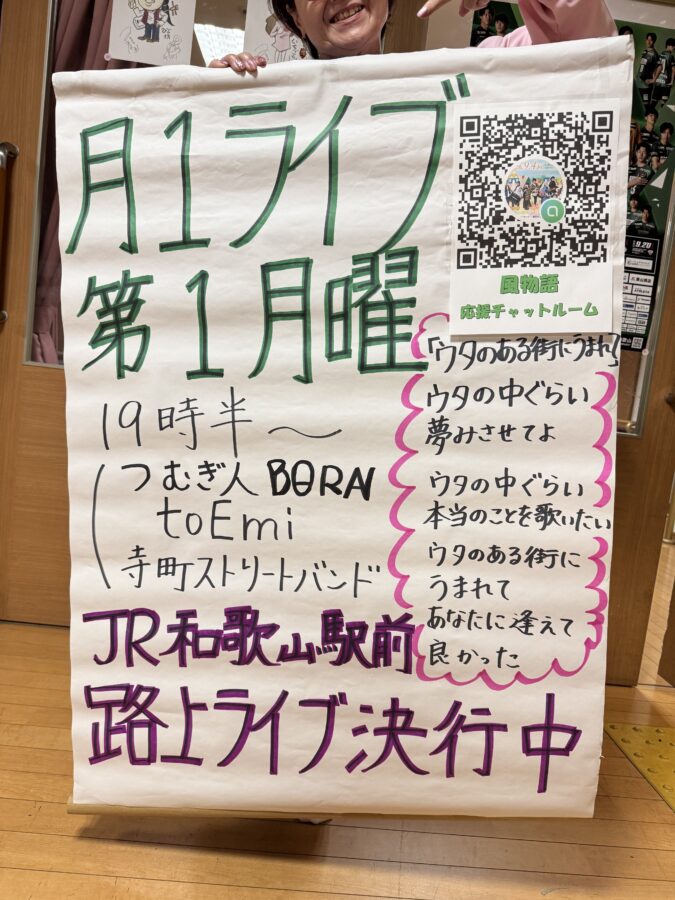 月1ライブ
第1月曜
19時半〜
つむぎ人 BORN
toEmi
寺町ストリートバンド
JR和歌山駅前
路上ライブ決行中
風物語
応援チャットルーム
「ウタのある街にうまれ」
ウタの中ぐらい
夢みさせてよ
ウタの中ぐらい
本当のことを歌いたい
ウタのある街に
うまれて
あなたに逢えて
良かった
9.20